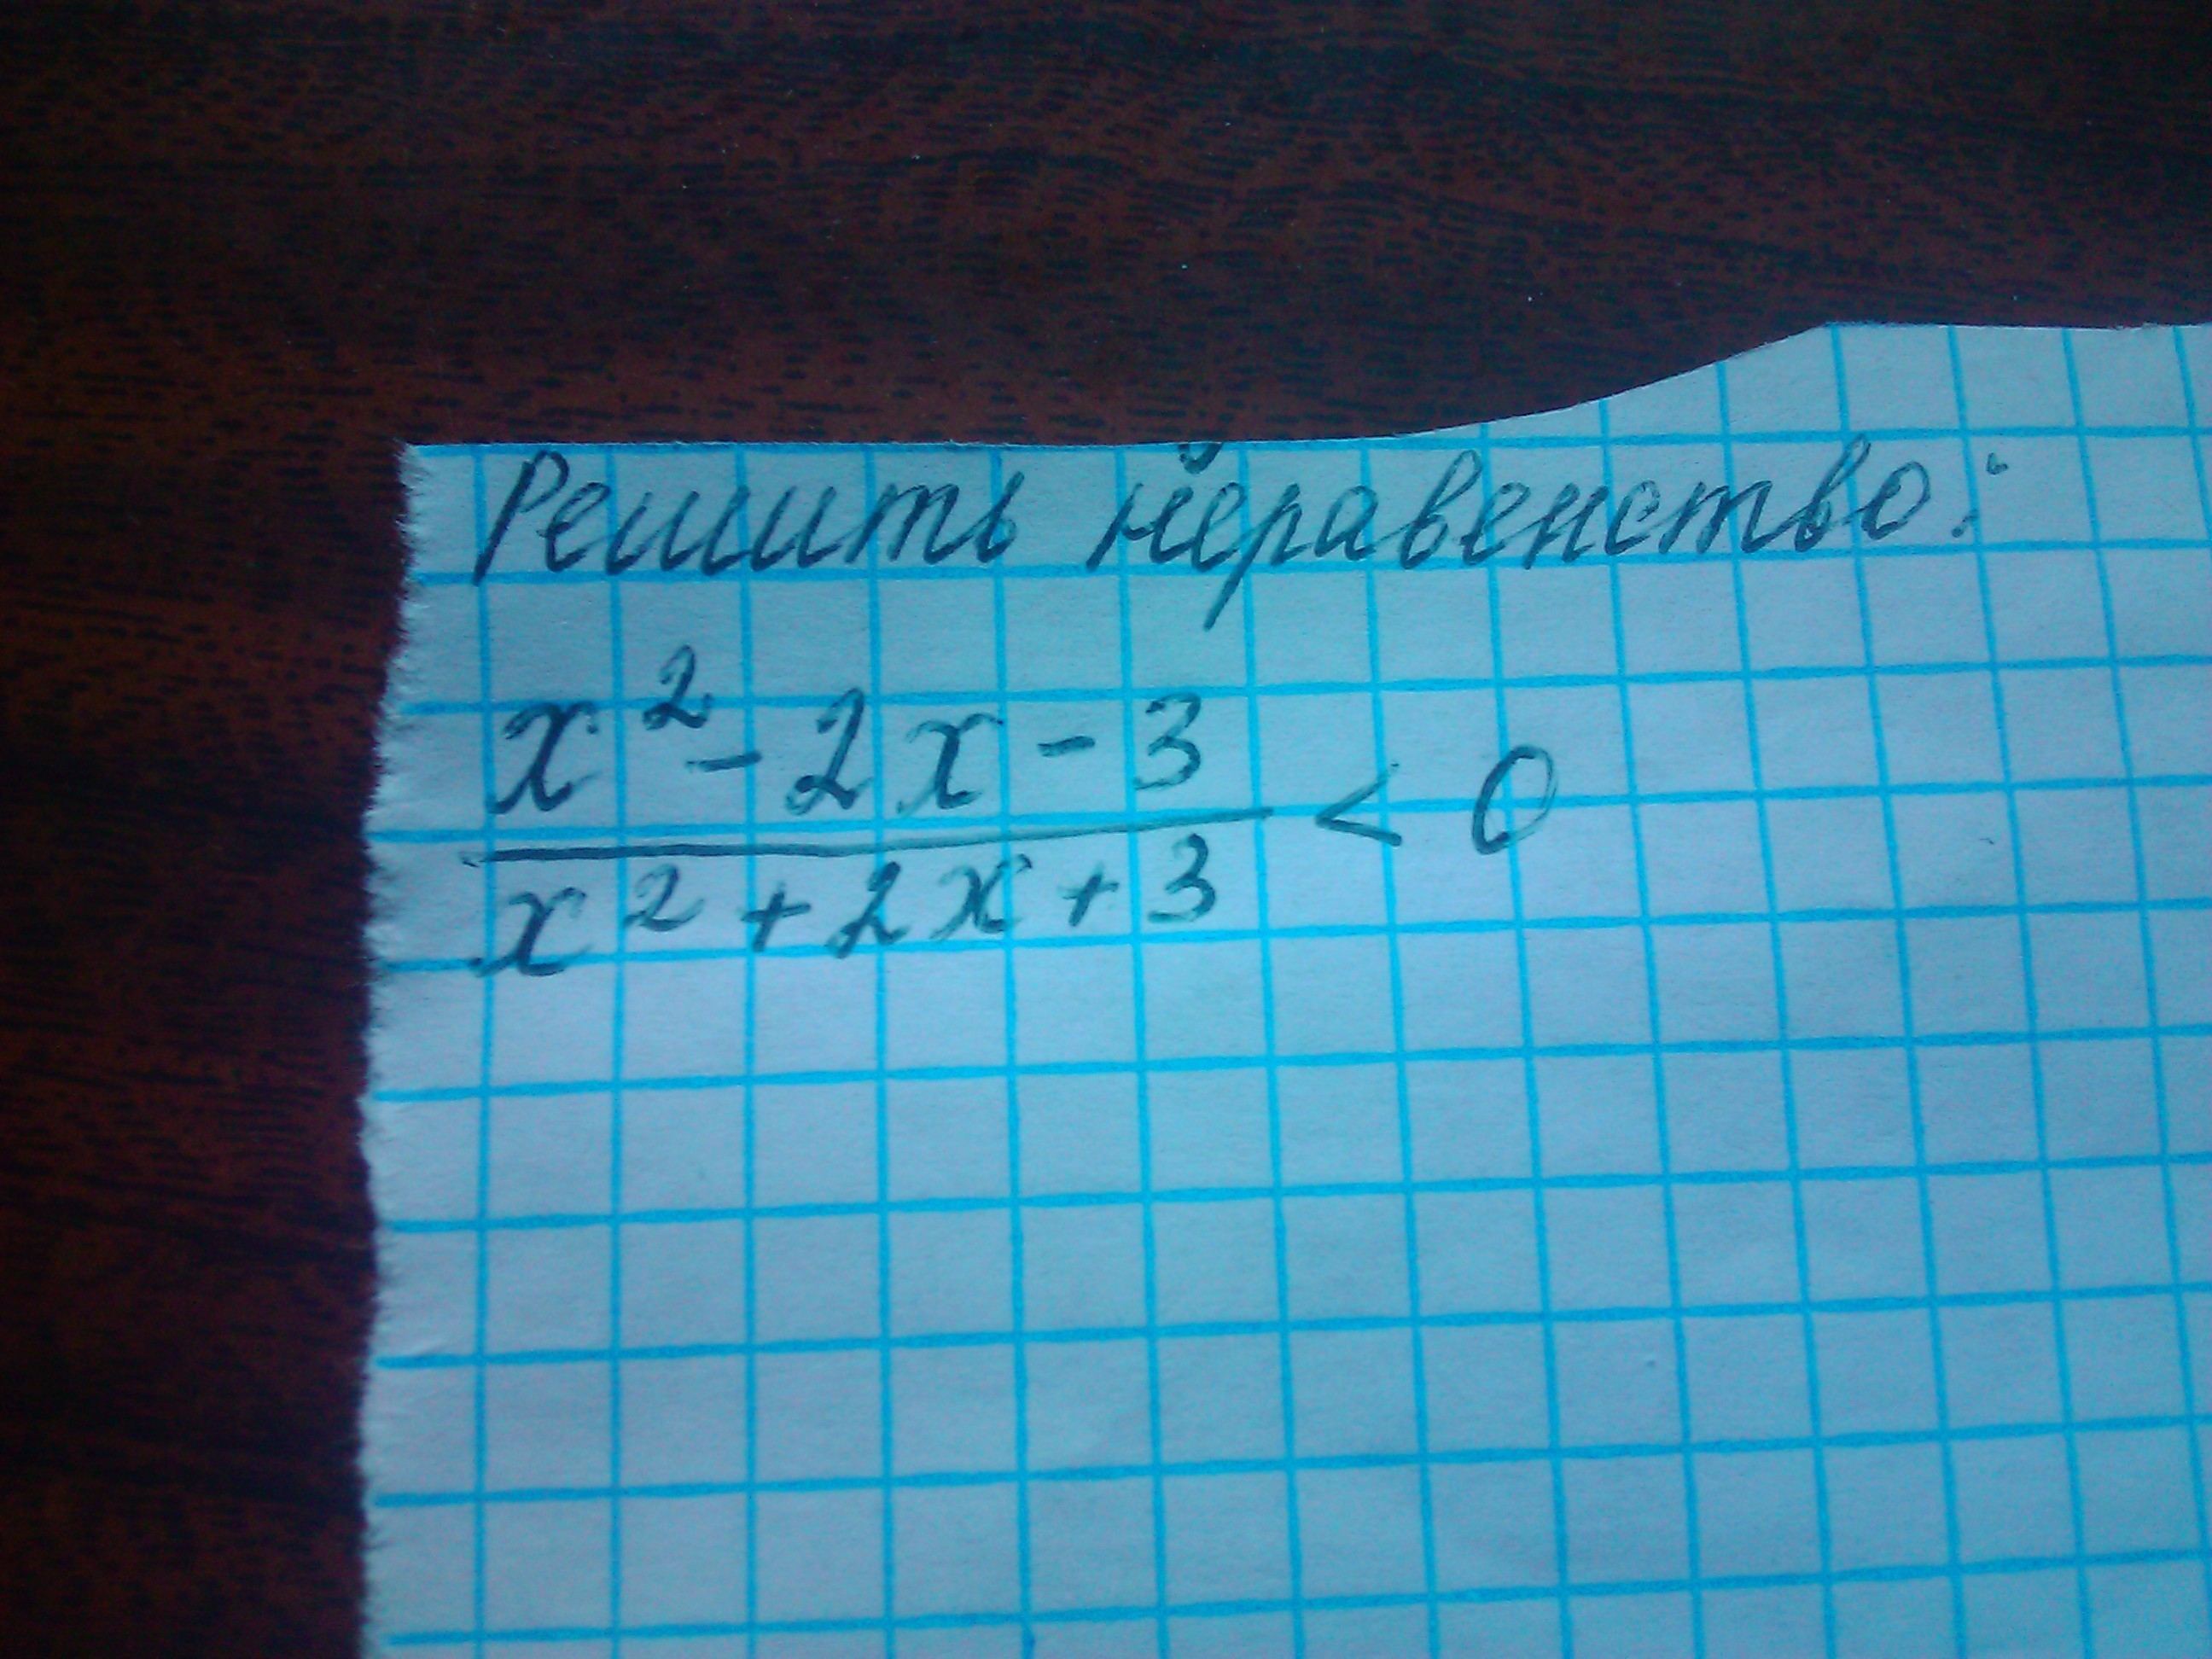 Решить неравенство:
x² - 2x - 3
x² + 2x + 3
< 0